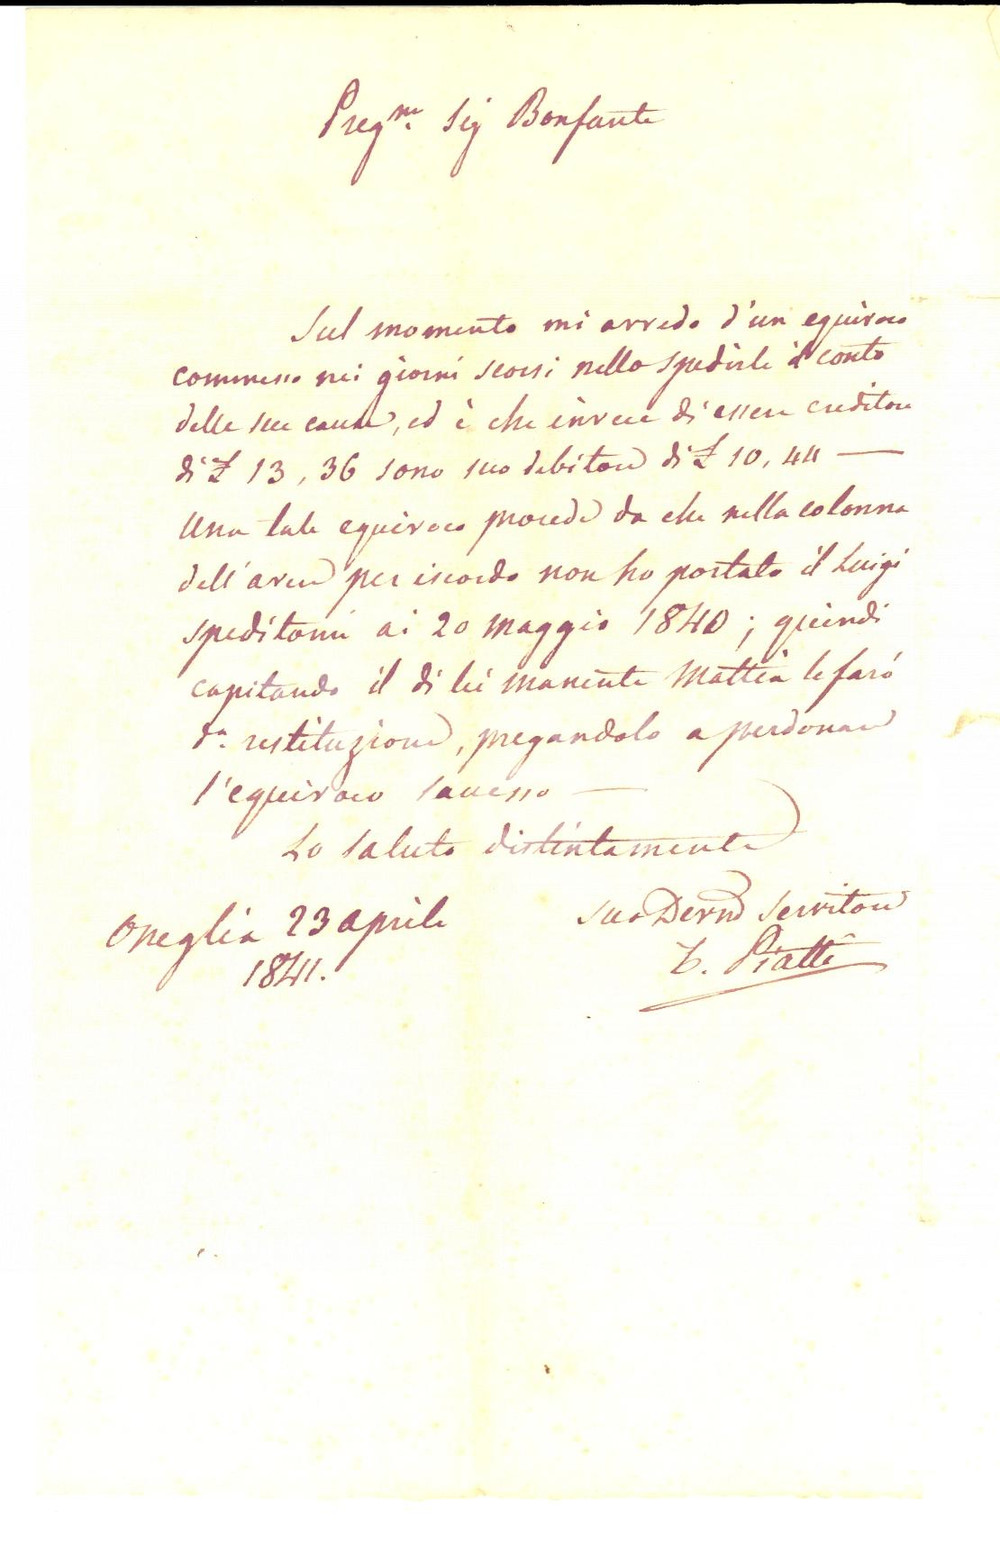 Preg.me Sig Bonfante
Sul momento mi avvedo d'un equivoco
commesso nei giorni scorsi nello spedirle il conto
delle sue cause, ed è che invece di essere creditore
di £ 13, 36 sono suo debitore di £ 10, 44 —
Una tale equivoco procede da che nella colonna
dell'avere per iscordo non ho portato il Luigi
speditomi ai 20 Maggio 1840; quindi
capitando il di lei manente Mattia le farò
da. restituzione, pregandolo a perdonare
l'equivoco successo —
Lo saluto distintamente
Oneglia 23 aprile
1841.
Suo Devmo Servitore
Piatti